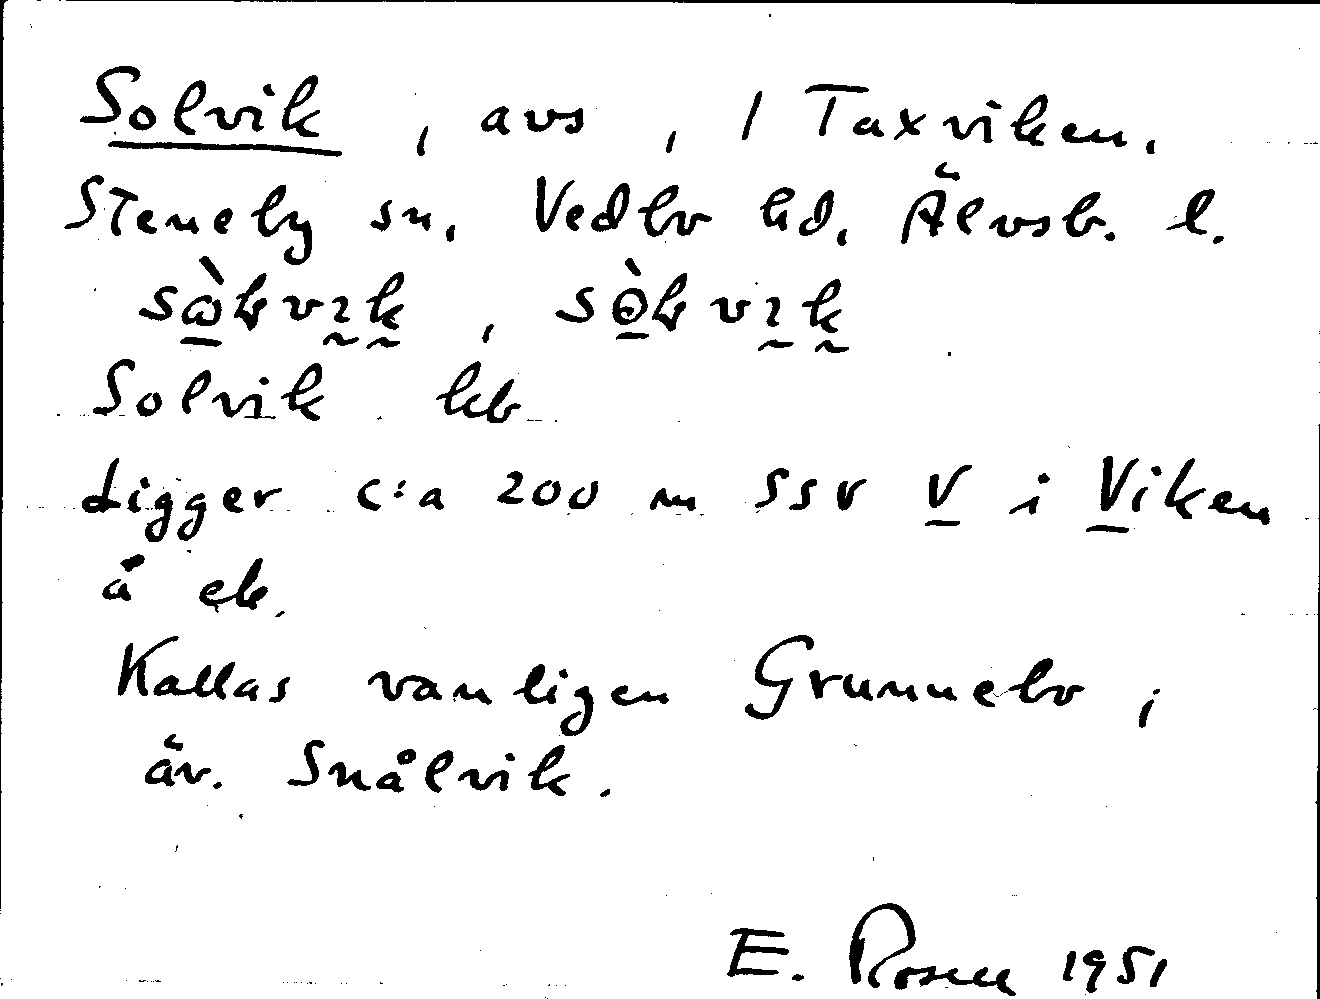 Solvik, avs, 1 Taxviken.
Steneby sn. Vedbo hd. Älvsb. l.
Solvik kb
Ligger c:a 200 m SSV V i Viken
å ek.
Kallas vanligen Grunnebo,
äv. Snålvik.
E. Rosell 1951